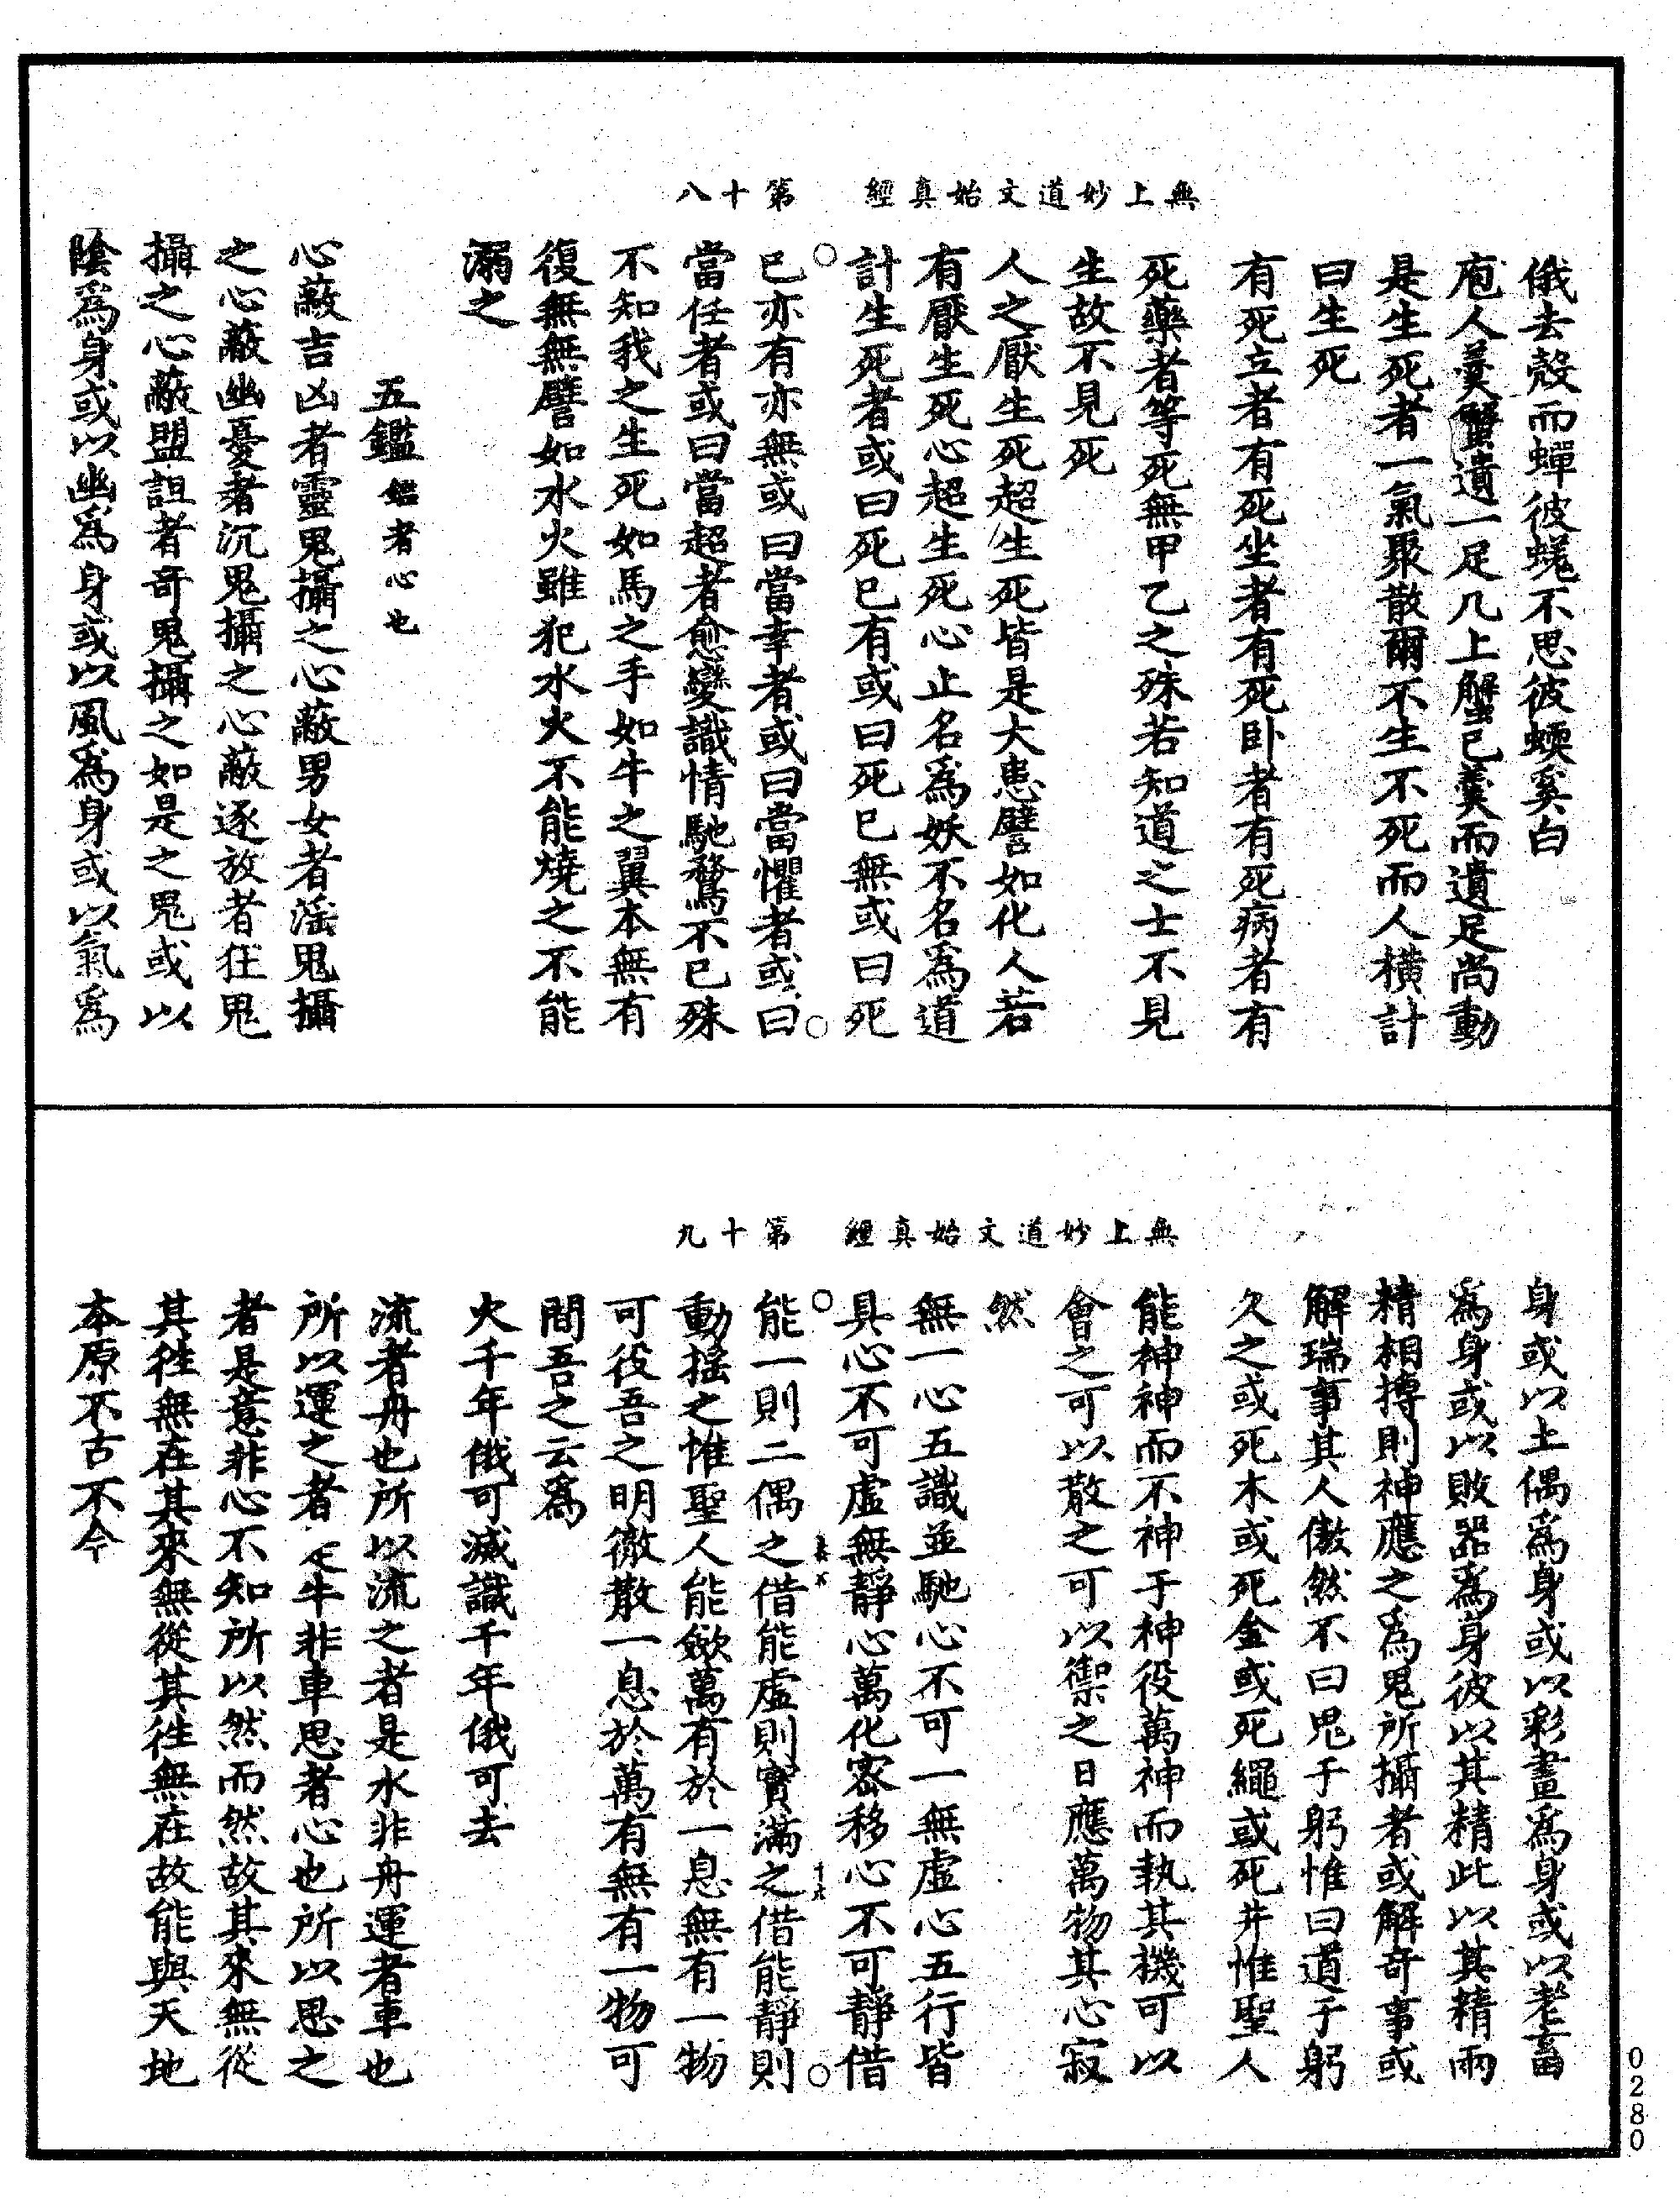 無上妙道文始真經　第十八
俄去殼而蟬彼蜣不思彼蜣奚白
庖人羹蟹遺一足几上蟹已羹而遺足尚動
是生死者一氣聚散爾不生不死而人橫計
曰生死
有死立者有死坐者有死卧者有死病者有
死藥者等死無甲乙之殊若知道之士不見
生故不見死
人之厭生死超生死皆是大患譬如化人若
有厭生死心超生死心止名為妖不名為道
計生死者或曰死已有或曰死已無或曰死
已亦有亦無或曰當幸者或曰當懼者或曰
當任者或曰當超者愈變識情馳騖不已殊
不知我之生死如馬之手如牛之翼本無有
復無無譬如水火雖犯水火不能燒之不能
溺之
五鑑鑑者心也
心蔽吉凶者靈鬼攝之心蔽男女者淫鬼攝
之心蔽幽憂者沉鬼攝之心蔽逐放者狂鬼
攝之心蔽盟詛者奇鬼攝之如是之鬼或以
陰為身或以幽為身或以風為身或以氣為
無上妙道文始真經　第十九
身或以土偶為身或以彩畫為身或以老畜
為身或以敗器為身彼以其精此以其精兩
精相搏則神應之為鬼所攝者或解奇事或
解瑞事其人傲然不曰鬼于躬惟曰道于躬
久之或死木或死金或死繩或死井惟聖人
能神神而不神于神役萬神而執其機可以
會之可以散之可以禦之日應萬物其心寂
然
無一心五識並馳心不可一無虛心五行皆
具心不可虛無靜心萬化密移心不可靜借
能一則二偶之借能虛則實滿之借能靜則
動搖之惟聖人能斂萬有於一息無有一物
可役吾之明徹散一息於萬有無有一物可
間吾之云為
火千年俄可滅識千年俄可去
流者舟也所以流之者是水非舟運者車也
所以運之者是牛非車思者心也所以思之
者是意非心不知所以然而然故其來無從
其往無在其來無從其往無在故能與天地
本原不古不今
0280